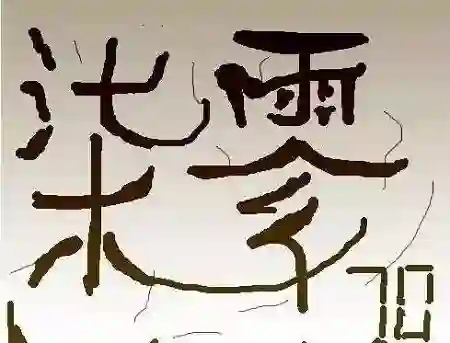 柒零
70